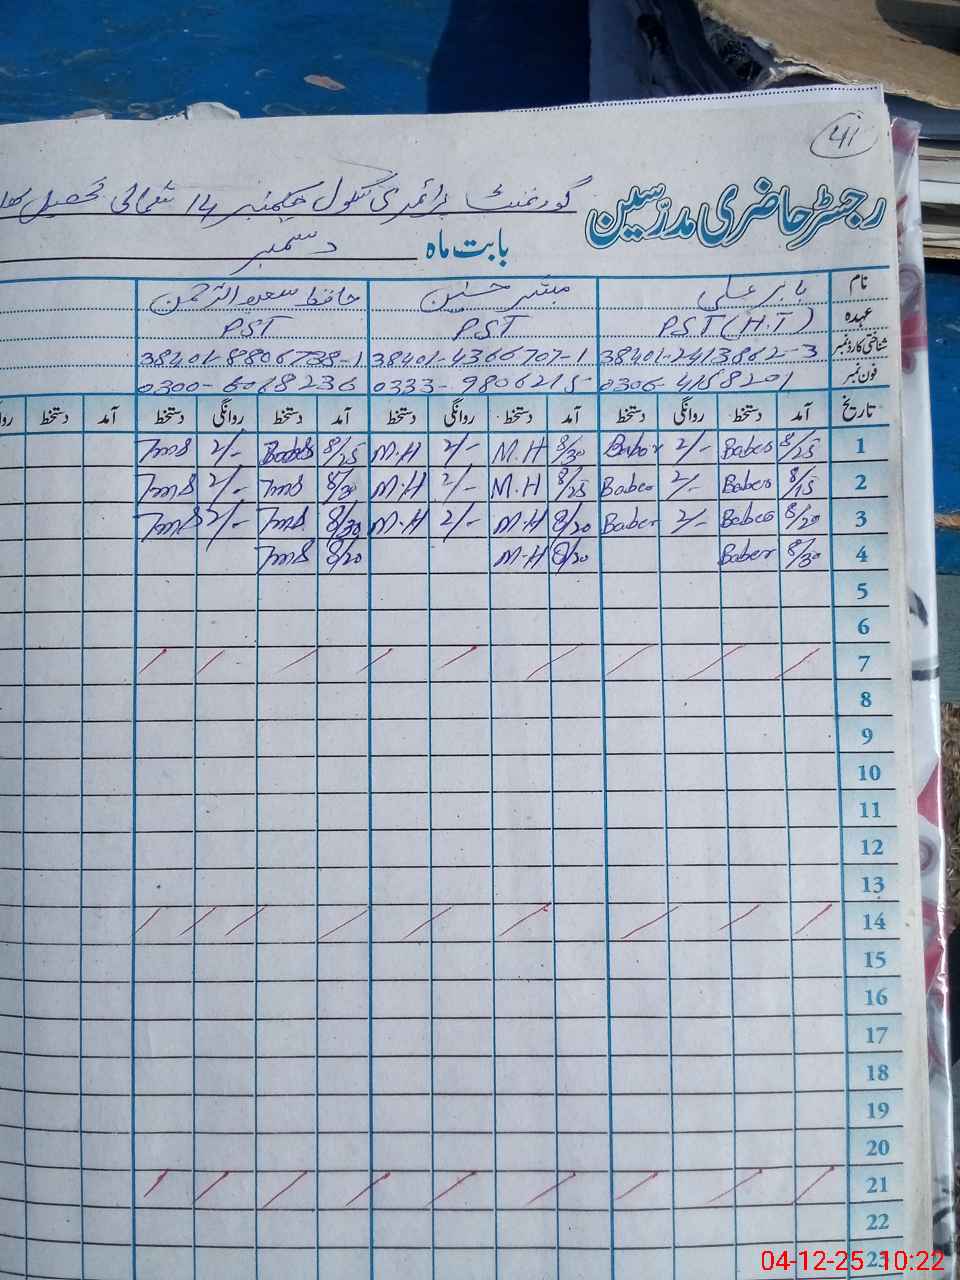 41
رجسٹر حاضری مدرسین گورنمنٹ پرائمری سکول چکنمبر 14 شمالی تحصیل
بابت ماہ دسمبر
نام بابر علی مبشر حسنین حافظ سعید الرحمن
عہدہ PST (H.T) PST PST
شناختی کارڈ نمبر 38401-2413862-3 38401-4366707-1 38401-8806738-1
فون نمبر 0306-4158201 0333-9806215- 0300-6018236
تاریخ آمد دستخط روانگی دستخط آمد دستخط روانگی دستخط آمد دستخط روانگی دستخط آمد دستخط روا
1 8/25 Baber 2/- Baber 8/30 M.H 2/- M.H 8/25 2/- Tms
2 8/15 Baber 2/- Baber 8/25 M.H 2/- M.H 8/30 Tms 2/- Tms
3 8/20 Baber 2/- Baber 8/20 M-H 2/- M-H 8/30 Tms 2/- Tms
4 8/30 Baber 8/20 M-H 8/20 Tms
5
6
7
8
9
10
11
12
13
14
15
16
17
18
19
20
21
22
23
04-12-25 10:22